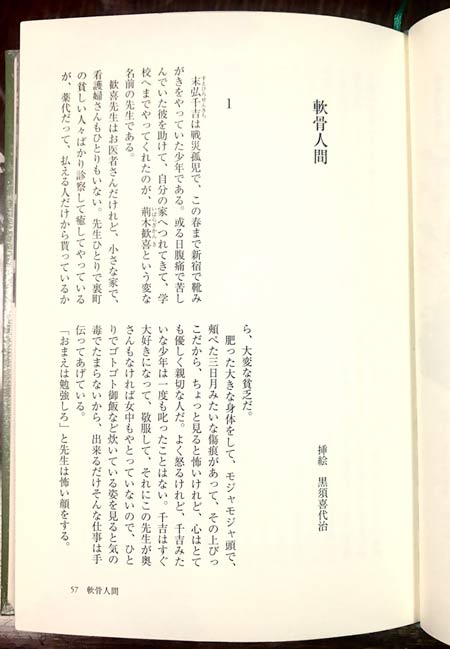 軟骨人間
挿絵 黒須喜代治
1
末弘千吉は戦災孤児で、この春まで新宿で靴み
がきをやっていた少年である。或る日腹痛で苦し
んでいた彼を助けて、自分の家へつれてきて、学
校へまでやってくれたのが、荊木歓喜という変な
名前の先生である。
歓喜先生はお医者さんだけれど、小さな家で、
看護婦さんもひとりもいない。先生ひとりで裏町
の貧しい人々ばかり診察して癒してやっている
が、薬代だって、払える人だけから貰っているか
ら、大変な貧乏だ。
肥った大きな身体をして、モジャモジャ頭で、
頰ぺた三日月みたいな傷痕があって、その上びっ
こだから、ちょっと見ると怖いけれど、心はとて
も優しく親切な人だ。よく怒るけれど、千吉みた
いな少年は一度も叱ったことはない。千吉はすぐ
大好きになって、敬服して、それにこの先生が奥
さんもなければ女中もやとっていないので、ひと
りでゴトゴト御飯など炊いている姿を見ると気の
毒でたまらないから、出来るだけそんな仕事は手
伝ってあげている。
「おまえは勉強しろ」と先生は怖い顔をする。
57 軟骨人間